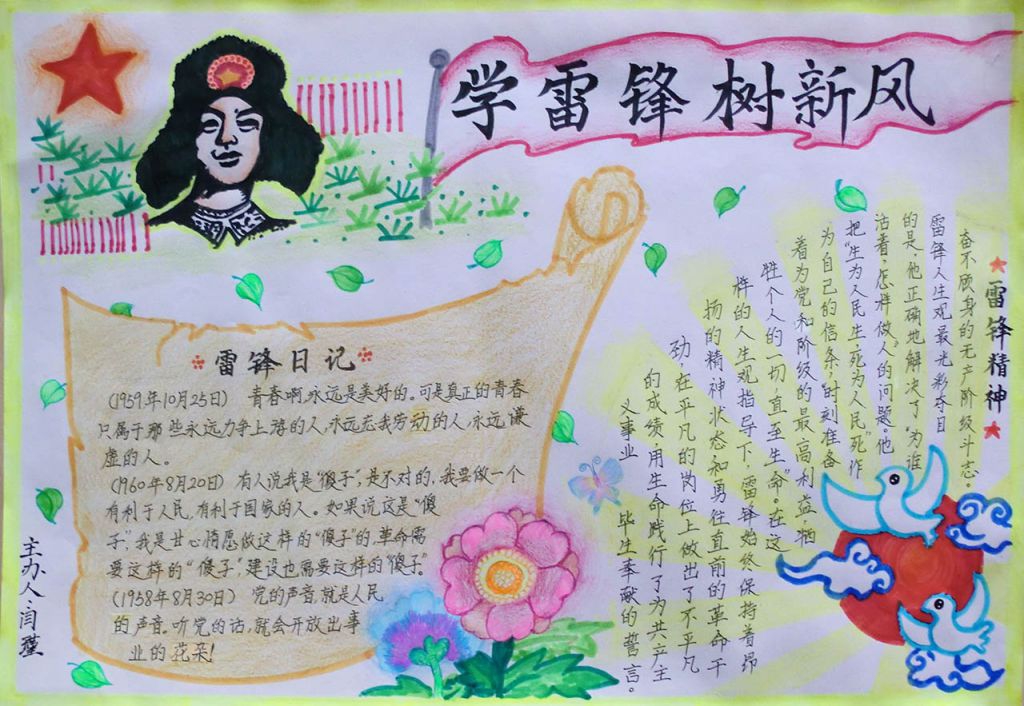 学雷锋树新风
雷锋日记
(1959年10月25日) 青春啊,永远是美好的。可是真正的青春
只属于那些永远力争上游的人,永远忘我劳动的人,永远谦
虚的人。
(1960年8月20日) 有人说我是“傻子”,是不对的,我要做一个
有利于人民,有利于国家的人。如果说这是“傻
子”,我是甘心情愿做这样的“傻子”的,革命需
要这样的“傻子”,建设也需要这样的“傻子”。
(1958年8月30日) 党的声音,就是人民
的声音。听党的话,就会开放出事
业的花朵!
雷锋精神
奋不顾身的无产阶级斗志。
雷锋人生观最光彩夺目
的是,他正确地解决了“为谁
活着,怎样做人”的问题。他
把“生为人民生,死为人民死”作
为自己的信条,“时刻准备
着为党和阶级的最高利益牺
牲个人的一切,直至生命”。在这
样的人生观指导下,雷锋始终保持着昂
扬的精神状态和勇往直前的革命干
劲,在平凡的岗位上做出了不平凡
的成绩,用生命践行了为共产主
义事业 毕生奉献的誓言。
主办人:闫